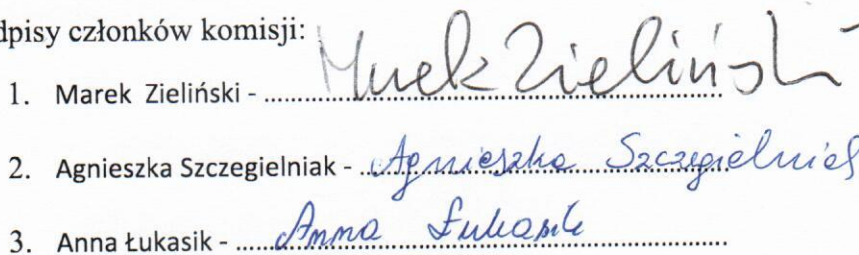 dpisy członków komisji:
1. Marek Zieliński - ........ Marek Zieliński
2. Agnieszka Szczegielniak - ........ Agnieszka Szczegielniak
3. Anna Łukasik - ........ Anna Łukasik